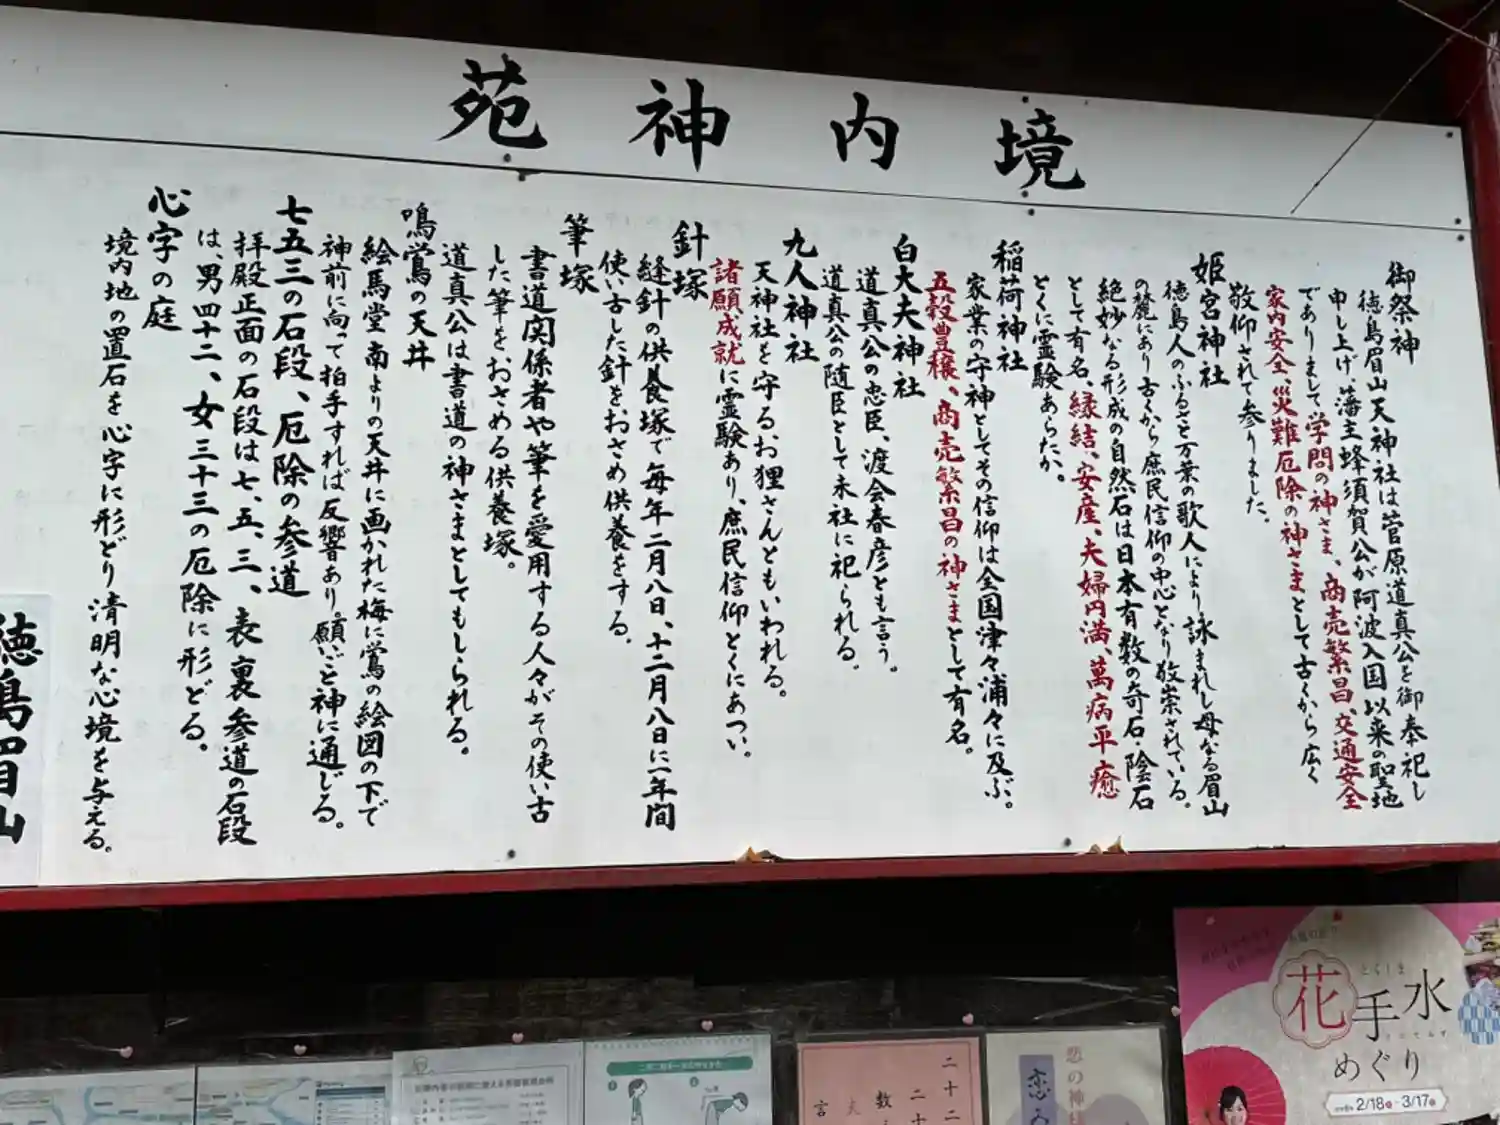 境内神苑
御祭神
徳島眉山天神社は菅原道真公を御奉祀し
申し上げ、藩主蜂須賀公が阿波入国以来の聖地
でありまして学問の神さま、商売繁昌、交通安全
家内安全、災難厄除の神さまとして古くから広く
敬仰されて参りました。
姫宮神社
徳島人のふるさと万葉の歌人により詠まれし母なる眉山
の麓にあり古くから庶民信仰の中心となり敬崇されている。
絶妙なる形成の自然石は日本有数の奇石・陰石
として有名、縁結、安産、夫婦円満、萬病平癒
とくに霊験あらたか。
稲荷神社
家業の守神としてその信仰は全国津々浦々に及ぶ。
五穀豊穣、商売繁昌の神さまとして有名。
白大夫神社
道真公の忠臣、渡会春彦とも言う。
道真公の随臣として末社に祀られる。
九人神社
天神社を守るお狸さんともいわれる。
諸願成就に霊験あり、庶民信仰とくにあつい。
針塚
縫針の供養塚で毎年二月八日、十二月八日に一年間
使い古した針をおさめ供養をする。
筆塚
書道関係者や筆を愛用する人々がその使い古
した筆をおさめる供養塚。
道真公は書道の神さまとしてもしられる。
鳴鴬の天井
絵馬堂南よりの天井に画かれた梅に鴬の絵図の下で
神前に向って拍手すれば反響あり。願いごと神に通じる。
七五三の石段、厄除の参道
拝殿正面の石段は七、五、三、表裏参道の石段
は、男四十二、女三十三の厄除に形どる。
心字の庭
境内地の置石を心字に形どり清明な心境を与える。
徳島眉山
花手水
とくしま
めぐり
2/18 - 3/17
二十二
数
言
恋の神様